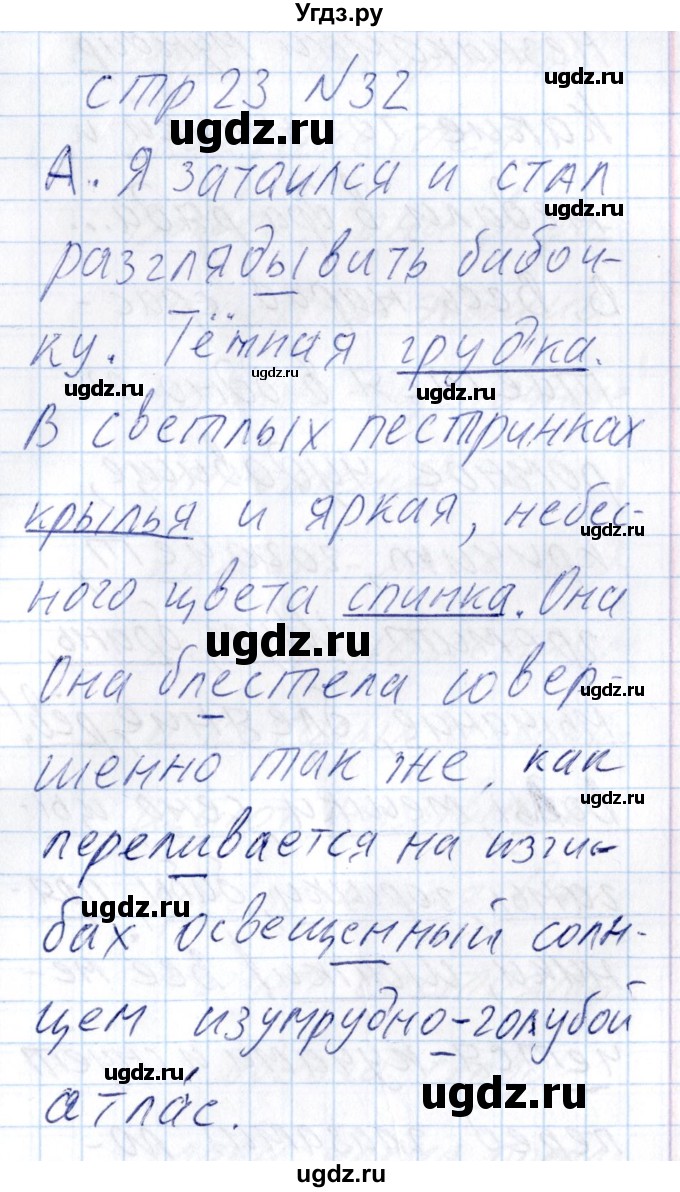 Угдз.ру
стр 23 №32
А. Я затаился и стал
разглядывить бабоч-
ку. Тёмная грудка.
В светлых пестринках
крылья и яркая, небес-
ного цвета спинка. Она
Она блестела совер-
шенно так же, как
переливается на изги-
бах освещенный солн-
цем изумрудно-голубой
атлас.
ugdz.ru
ugdz.ru
ugdz.ru
ugdz.ru
ugdz.ru
ugdz.ru
ugdz.ru
ugdz.ru
ugdz.ru
ugdz.ru
ugdz.ru
ugdz.ru
ugdz.ru
ugdz.ru